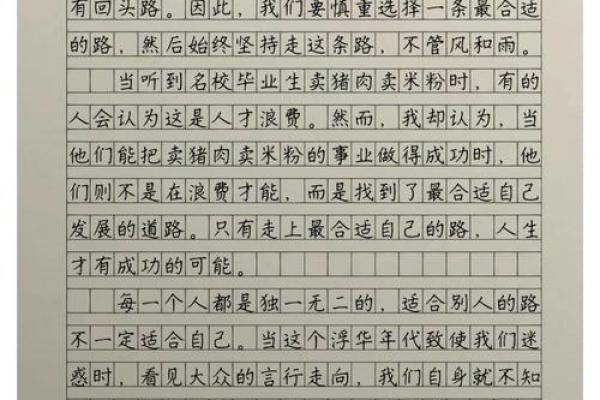 有回头路。因此，我们要慎重选择一条最合适
的路，然后始终坚持走这条路，不管风和雨。
当听到名校毕业生卖猪肉卖米粉时，有的
人会认为这是人才浪费。然而，我却认为，当
他们能把卖猪肉卖米粉的事业做得成功时，他
们则不是在浪费才能，而是找到了最合适自己
发展的道路。只有走上最合适自己的路，人生
才有成功的可能。
每一个人都是独一无二的，适合别人的路
不一定适合自己。当这个浮华年代致使我们迷
惑时，看见大众的言行走向，我们自身就不知